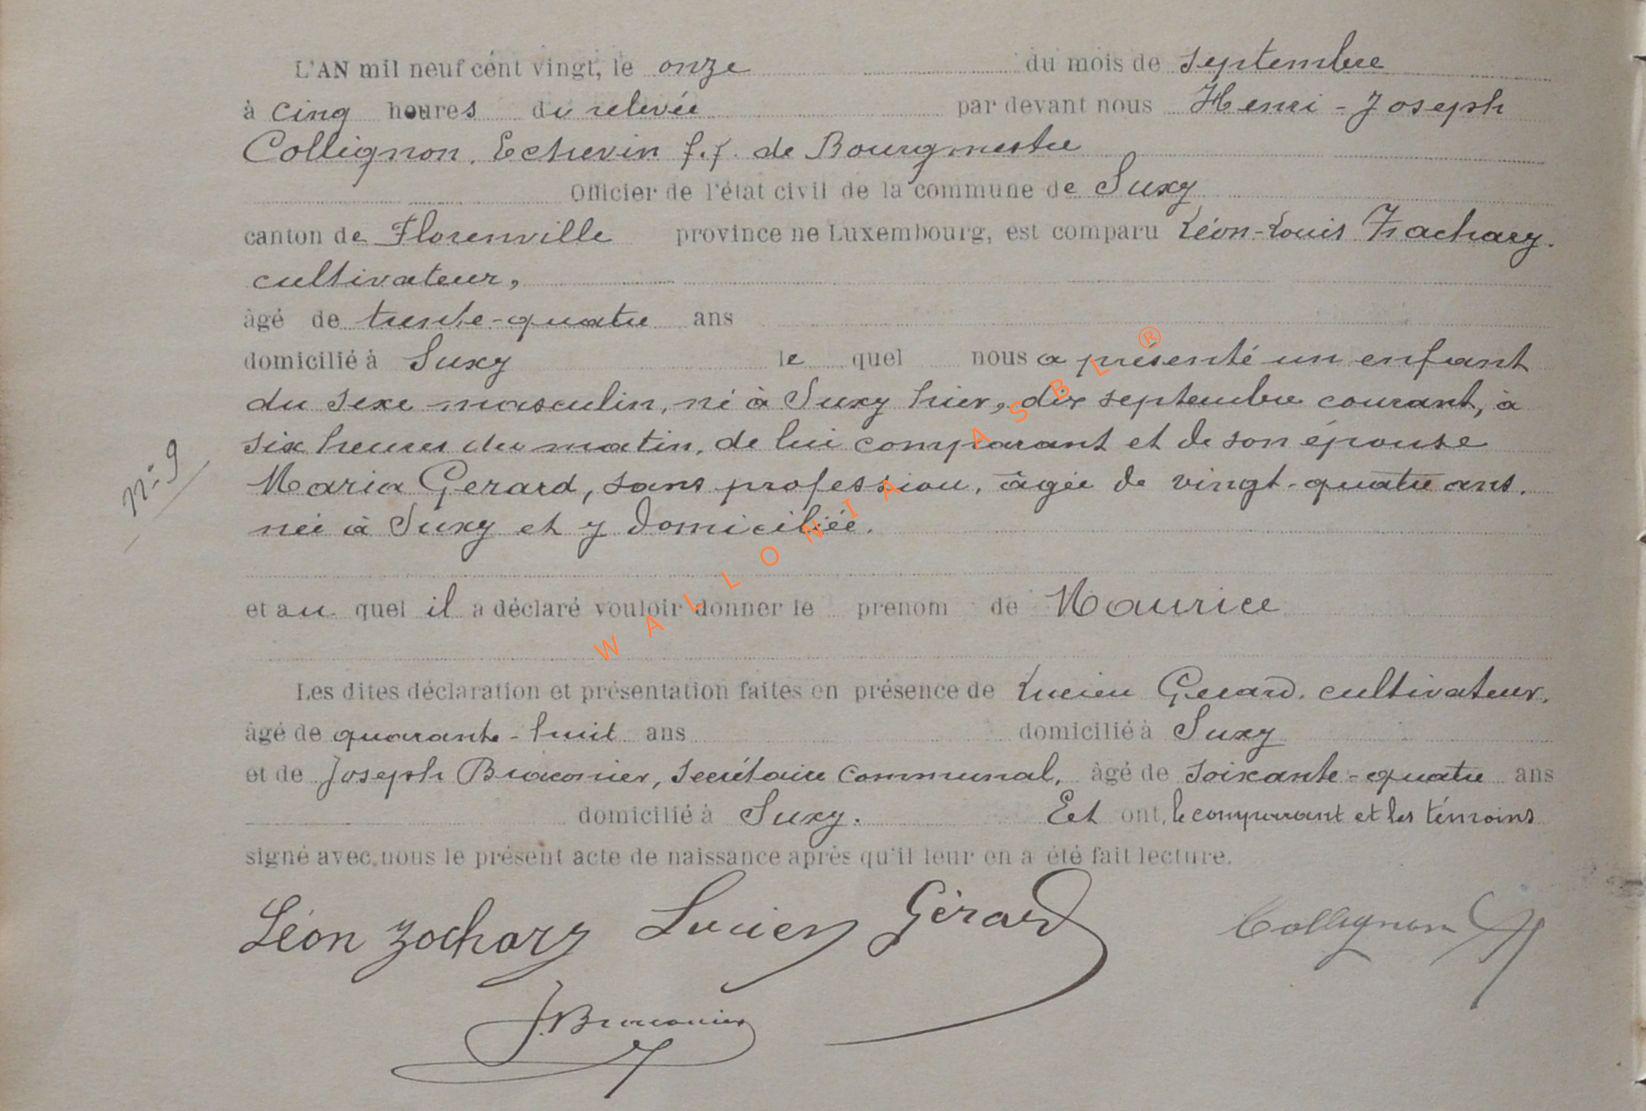 L'AN mil neuf cent vingt, le onze du mois de septembre
à cinq heures du relevée par devant nous Henri-Joseph
Collignon, Echevin f.f. de Bourgmestre
Officier de l'état civil de la commune de Suxy
canton de Florenville province ne Luxembourg, est comparu Léon-Louis Zachary.
cultivateur,
âgé de trente-quatre ans
domicilié à Suxy le quel nous a présenté un enfant
du sexe masculin, né à Suxy hier, dix septembre courant, à
six heures du matin, de lui comparant et de son épouse
n° 9
Maria Gerard, sans profession, âgée de vingt-quatre ans.
née à Suxy et y domiciliée.
et au quel il a déclaré vouloir donner le prenom de Maurice
WALLONIA ASBL ®
Les dites déclaration et présentation faites en présence de Lucien Gerard, cultivateur,
âgé de quarante-huit ans domicilié à Suxy
et de Joseph Braconier, secrétaire communal, âgé de soixante-quatre ans
domicilié à Suxy. Et ont, le comparant et les témoins
signé avec nous le présent acte de naissance après qu'il leur en a été fait lecture.
Léon Zachary Lucien Gérard Collignon HJ
J. Braconier